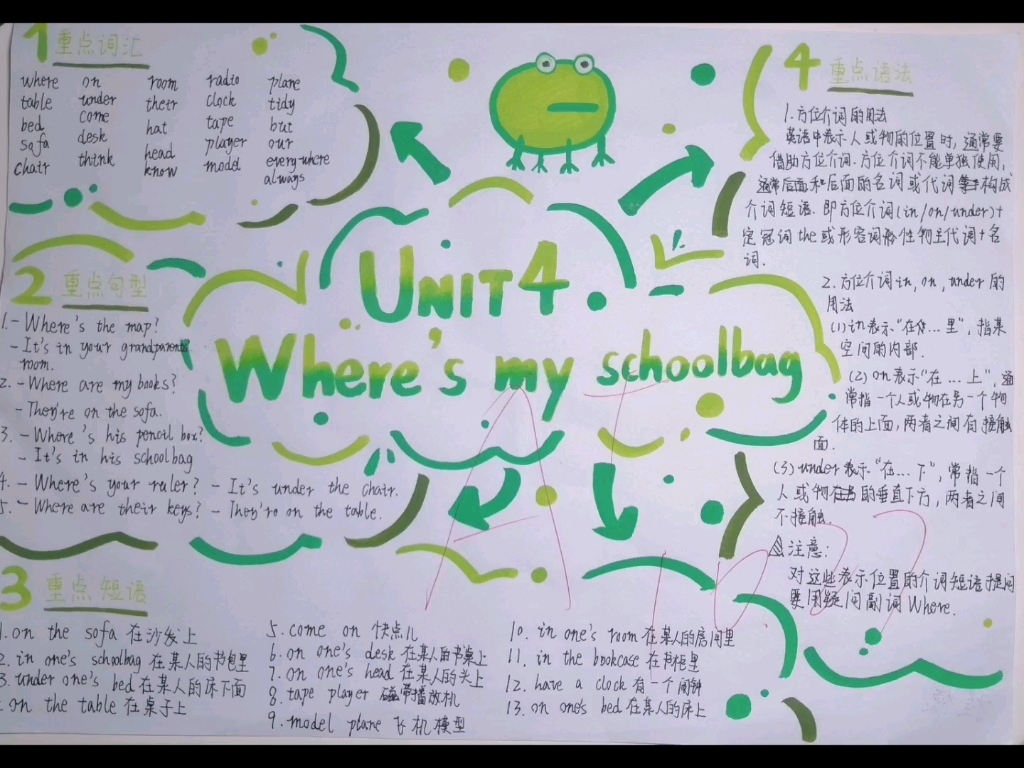 1 重点词汇
where on room radio plane
table under their clock tidy
bed come hat tape but
sofa desk head player our
chair think know model every-where
always
UNIT4
Where's my schoolbag
2 重点句型
1. - Where's the map?
- It's in your grandparents
room.
2. - Where are my books?
- They're on the sofa.
3. - Where's his pencil box?
- It's in his schoolbag
4. - Where's your ruler? - It's under the chair.
5. - Where are their keys? - They're on the table.
3 重点短语
1. on the sofa 在沙发上
2. in one's schoolbag 在某人的书包里
3. under one's bed 在某人的床下面
on the table 在桌子上
5. come on 快点儿
6. on one's desk 在某人的书桌上
7. on one's head 在某人的头上
8. tape player 播放机
9. model plane 飞机模型
10. in one's room 在某人的房间里
11. in the bookcase 在书柜里
12. have a clock 有一个闹钟
13. on one's bed 在某人的床上
4 重点语法
1. 方位介词的用法
英语中表示人或物的位置时,通常要
借助方位介词.方位介词不能单独使用,
通常后面和后面的名词或代词等构成
介词短语.即方位介词(in/on/under)+
定冠词the或形容词性物主代词+名
词.
2. 方位介词in, on, under 的
用法
(1) in 表示"在...里",指某
空间的内部.
(2) on 表示"在...上",通
常指一个人或物在另一个物
体的上面,两者之间有接触
面.
(3) under 表示"在...下",常指一个
人或物在的垂直下方,两者之间
不接触.
注意:
对这些表示位置的介词短语提问
要用疑问副词Where.